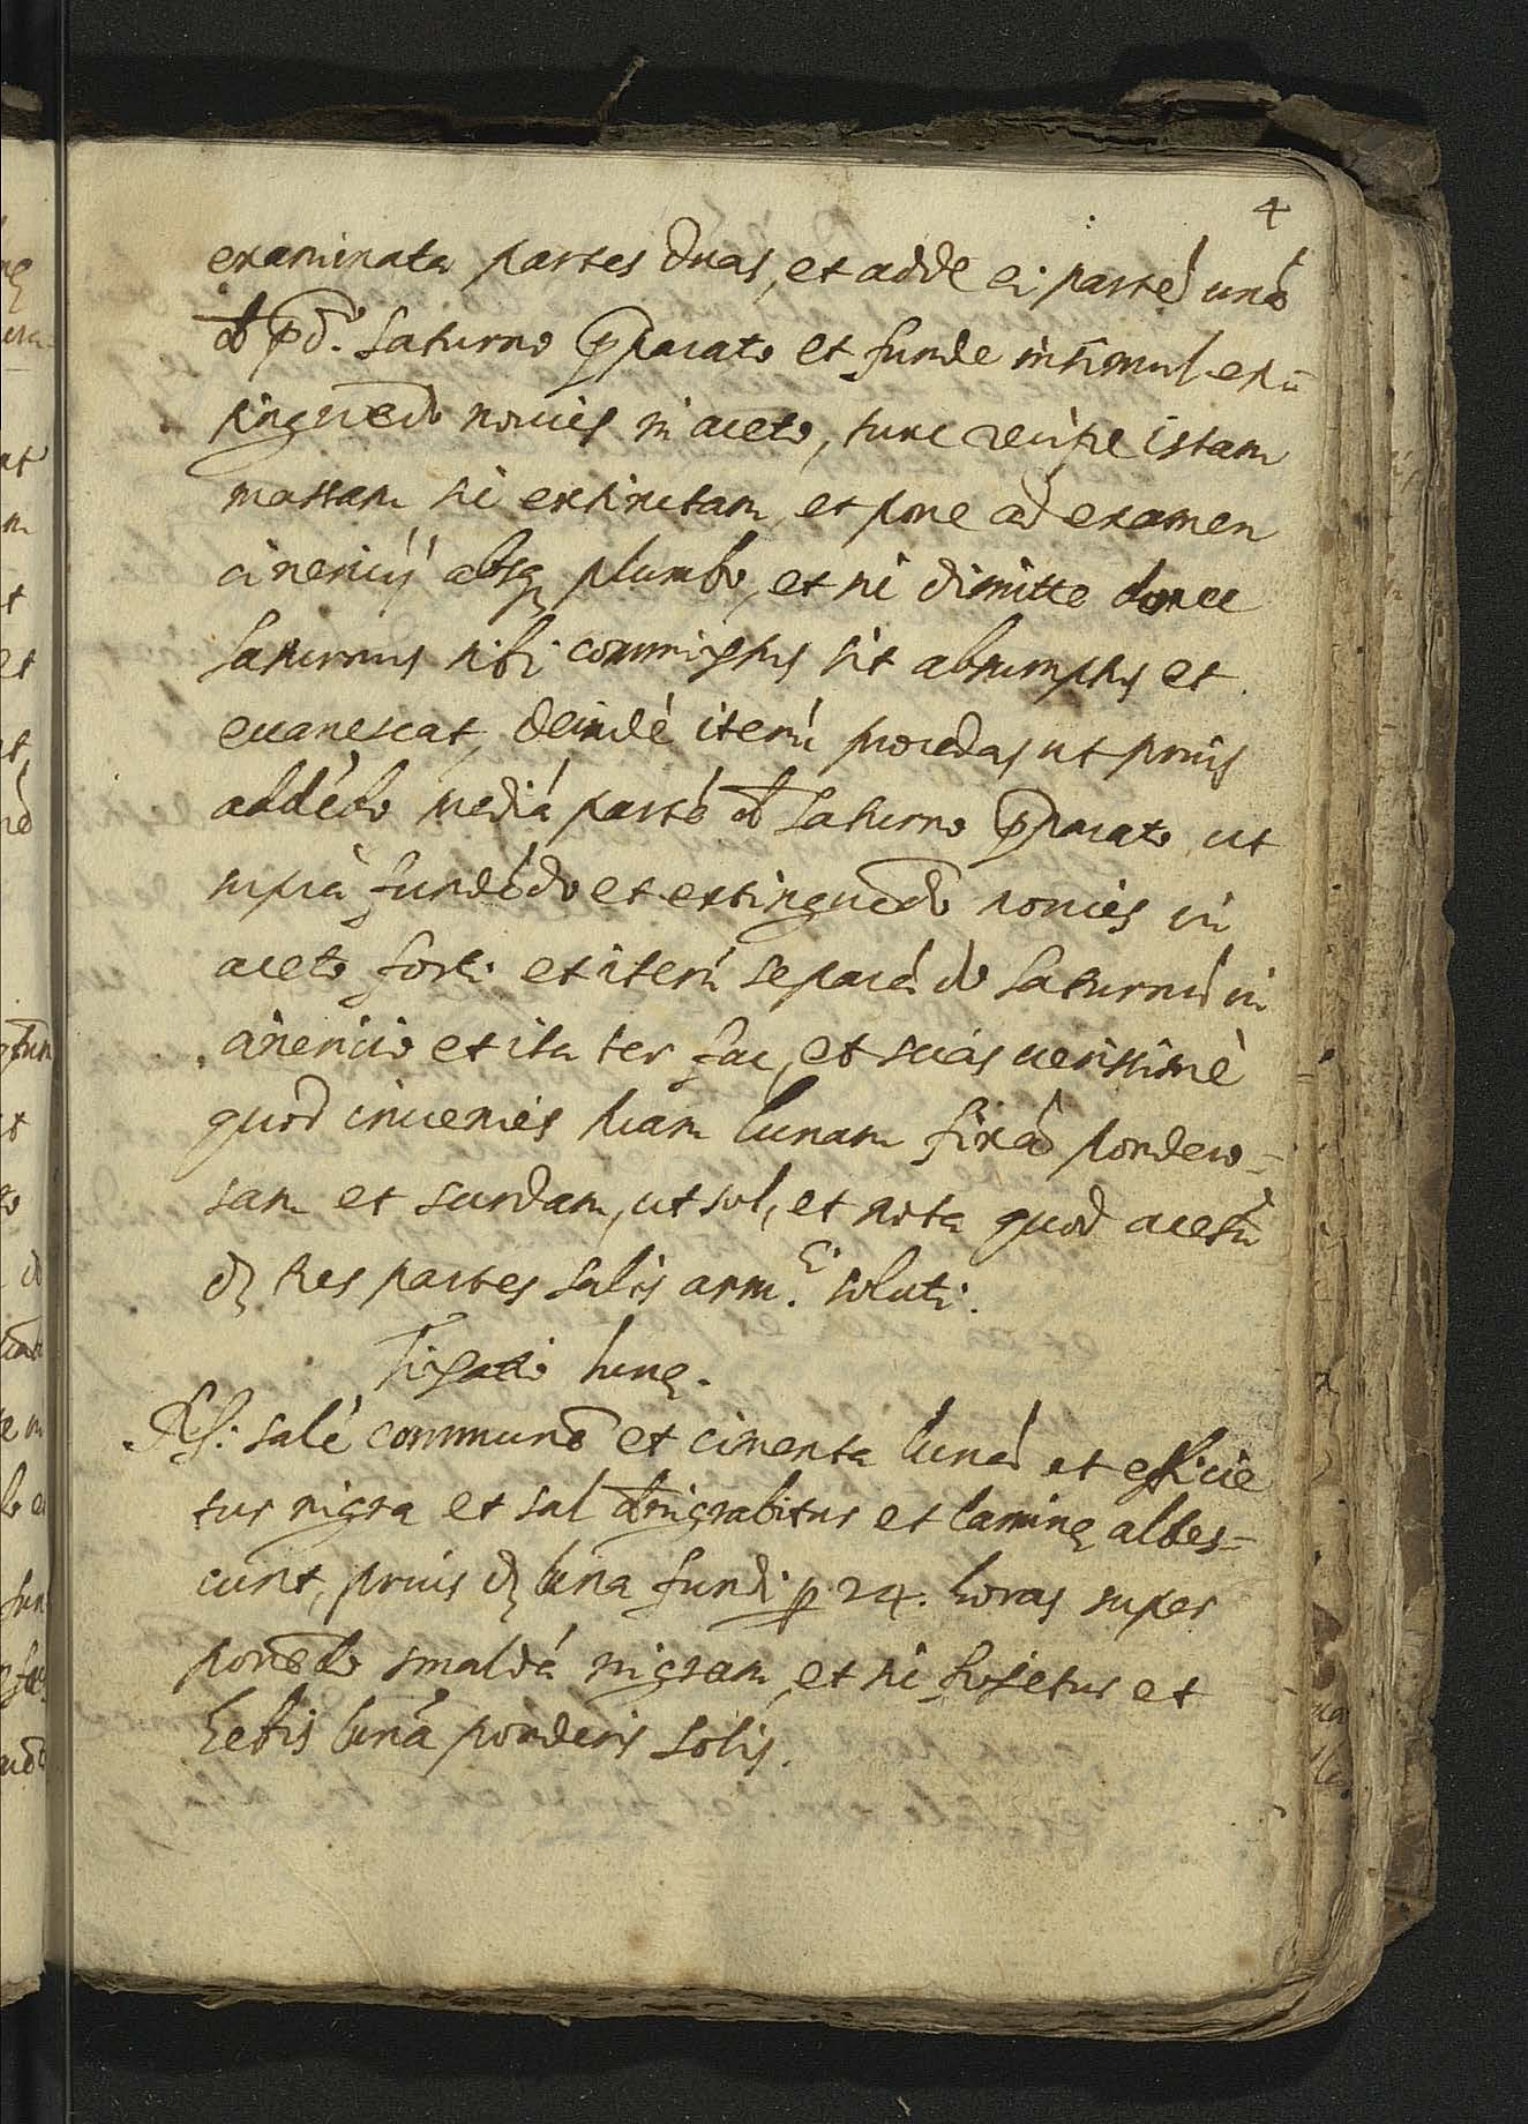 4
examinata partes duas, et adde ei parté uná
de p̃d.º Saturno p̃parato et funde insimul exti=
guẽdo nouies in aceto, tunc recipe istam
massam sic extinctam, et pone ad examen
cinericij absq plumbo, et sic dimitte donec
Saturnus sibi commixtus sit absumptus et
euanescat, deindè iterú procedas ut prius
addédo mediá parté de Saturno p̃parato, ut
suprà fundédo et extinguédo nouies in
aceto forti et iterú separádo Saturnú in
cinericio et ita ter fac, et scias uerissimè
quod inuenies tuam lunam fixá pondero=
sam et surdam, ut sol, et nota quod acetũ
dȝ tres partes salis arm.ci soluti.
Fixatio lunę.
Rc: salé communé et cimenta luná et efficie
tur nigra et sal denigrabitur et laminę albes=
cunt, prius dȝ luna fundi p̱ 24. horas super
ponédo smaldá nigram, et sic fixetur et
hebis luná ponderis solis.